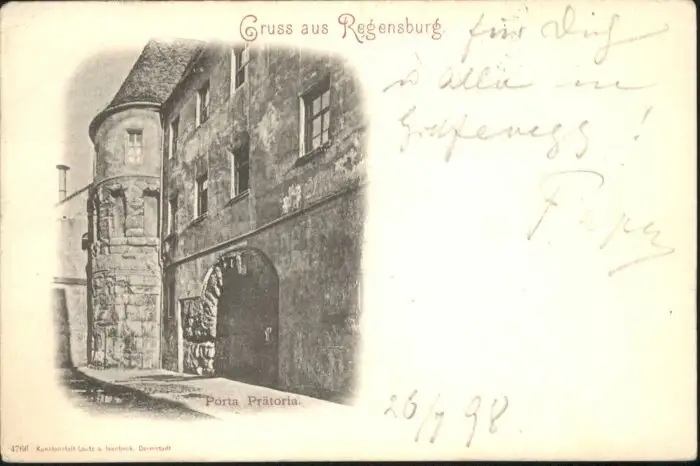 Gruss aus Regensburg.
für Dich
Alle in
!
Papa
26/7 98.
Porta Prätoria.
4766 Kunstanstalt Lautz & Isenbeck, Darmstadt